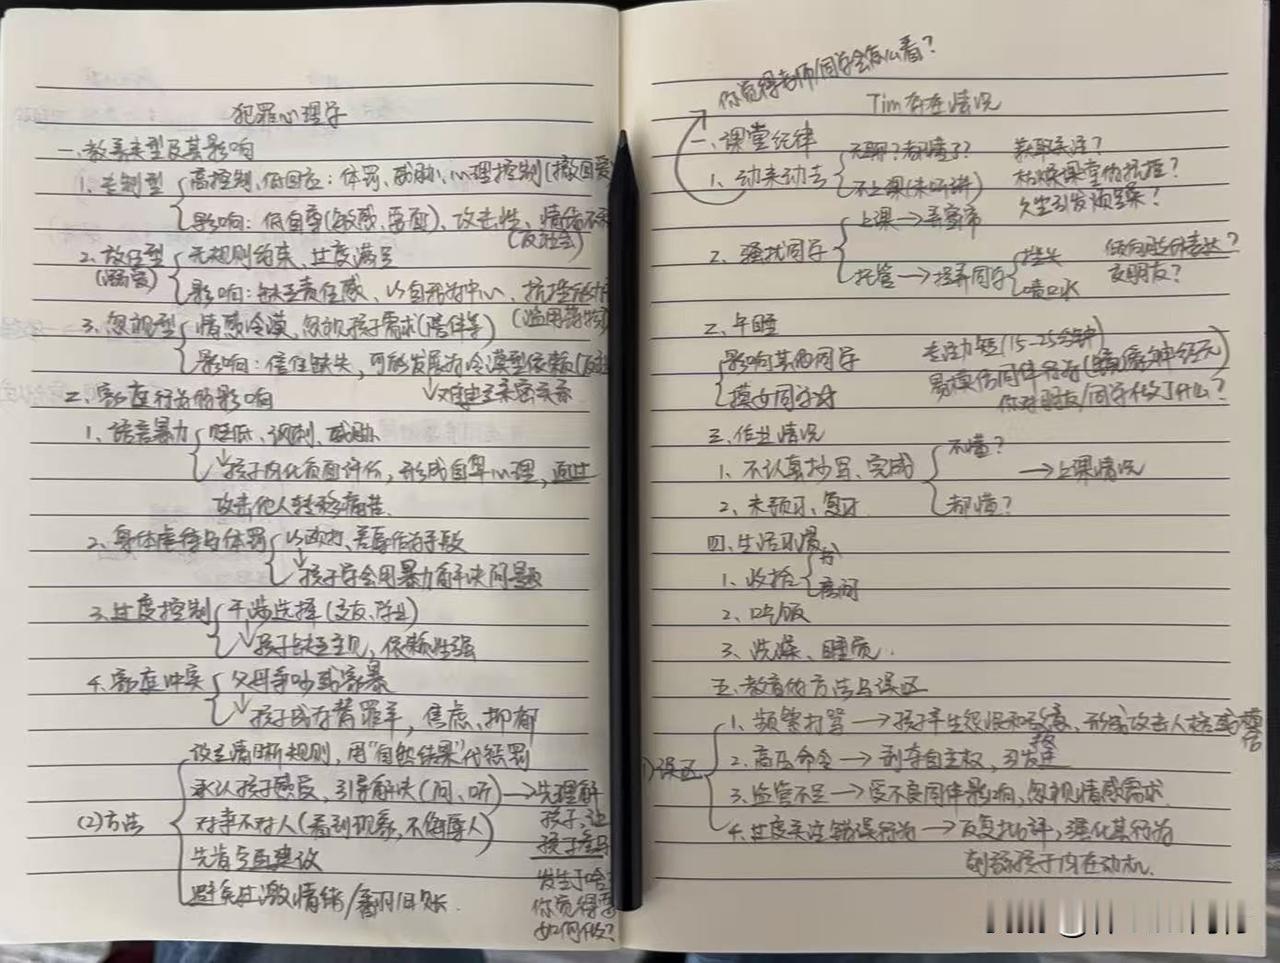 犯罪心理学
一、教养类型及其影响
1. 专制型 高控制、低回应：体罚、威胁、心理控制(撤回爱
影响：低自尊(敏感、要面)、攻击性、情绪不
(反社会)
2. 放任型 无规则约束、过度满足
(溺爱) 影响：缺乏责任感、以自我为中心、抗挫
(滥用药物)
3. 忽视型 情感冷漠、忽视孩子需求(陪伴等)
影响：信任缺失，可能发展为冷漠型依赖(反社
↓难建立亲密关系
二、家庭行为的影响
1. 语言暴力 贬低、讽刺、威胁
↓孩子内化负面评价，形成自卑心理，通过
攻击他人转移痛苦.
2. 身体虐待与体罚 以殴打、羞辱作为手段
↓孩子学会用暴力解决问题
3. 过度控制 干涉选择(交友、学业)
↓孩子缺乏主见，依赖性强
4. 家庭冲突 父母争吵或家暴
↓孩子成为替罪羊，焦虑、抑郁
设立清晰规则，用“自然结果”代惩罚
承认孩子感受，引导解决(问、听)→先理解
(2)方法 对事不对人(看到现象，不侮辱人) 孩子，让
孩子
先肯定再建议
避免过激情绪/翻旧账.
发生了啥
你觉得
如何做?
你觉得老师/同学会怎么看?
Tim存在情况
一、课堂纪律
无聊?都懂了? 获取关注?
1. 动来动去 不上课(未听讲) 枯燥课堂的抵抗?
久坐引发烦躁?
2. 骚扰同学 上课→弄窗帘
托管→捏弄同学 倾向肢体表达?
喷口水 交朋友?
二、午睡
影响其他同学 专注力短(15-25分钟)
摸女同学 易模仿同伴行为(镜像神经元)
你对朋友/同学做了什么?
三、作业情况
1. 不认真抄写、完成 不懂? →上课情况
2. 未预习、复习 都懂?
四、生活习惯
1. 收拾 房间
2. 吃饭
3. 洗澡、睡觉.
五、教育的方法与误区
1. 频繁打骂→孩子产生怨恨和，形成攻击人格或
(1)误区 2. 高压命令→剥夺自主权，引发
3. 监管不足→受不良同伴影响，忽视情感需求.
4. 过度关注错误行为→反复批评，强化其行为
削弱孩子内在动机.